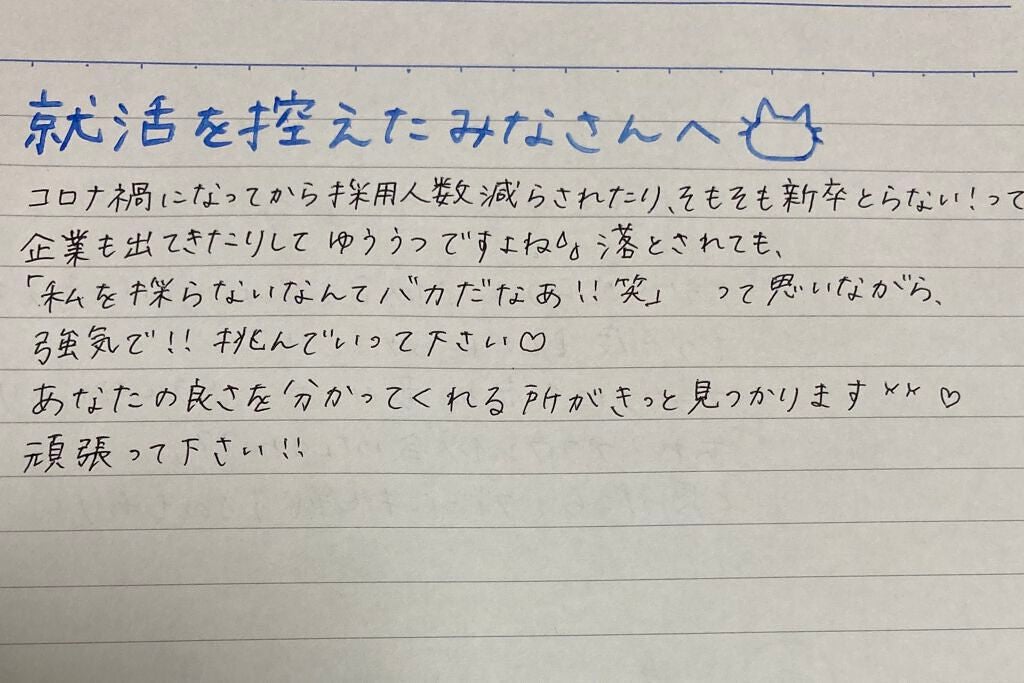 就活を控えたみなさんへ
コロナ禍になってから採用人数減らされたり、そもそも新卒とらない!って
企業も出てきたりして ゆううつですよね。落とされても、
「私を採らないなんてバカだなあ!!笑」 って思いながら、
強気で!! 挑んでいって下さい♡
あなたの良さを分かってくれる所がきっと見つかります ×× ♡
頑張って下さい!!